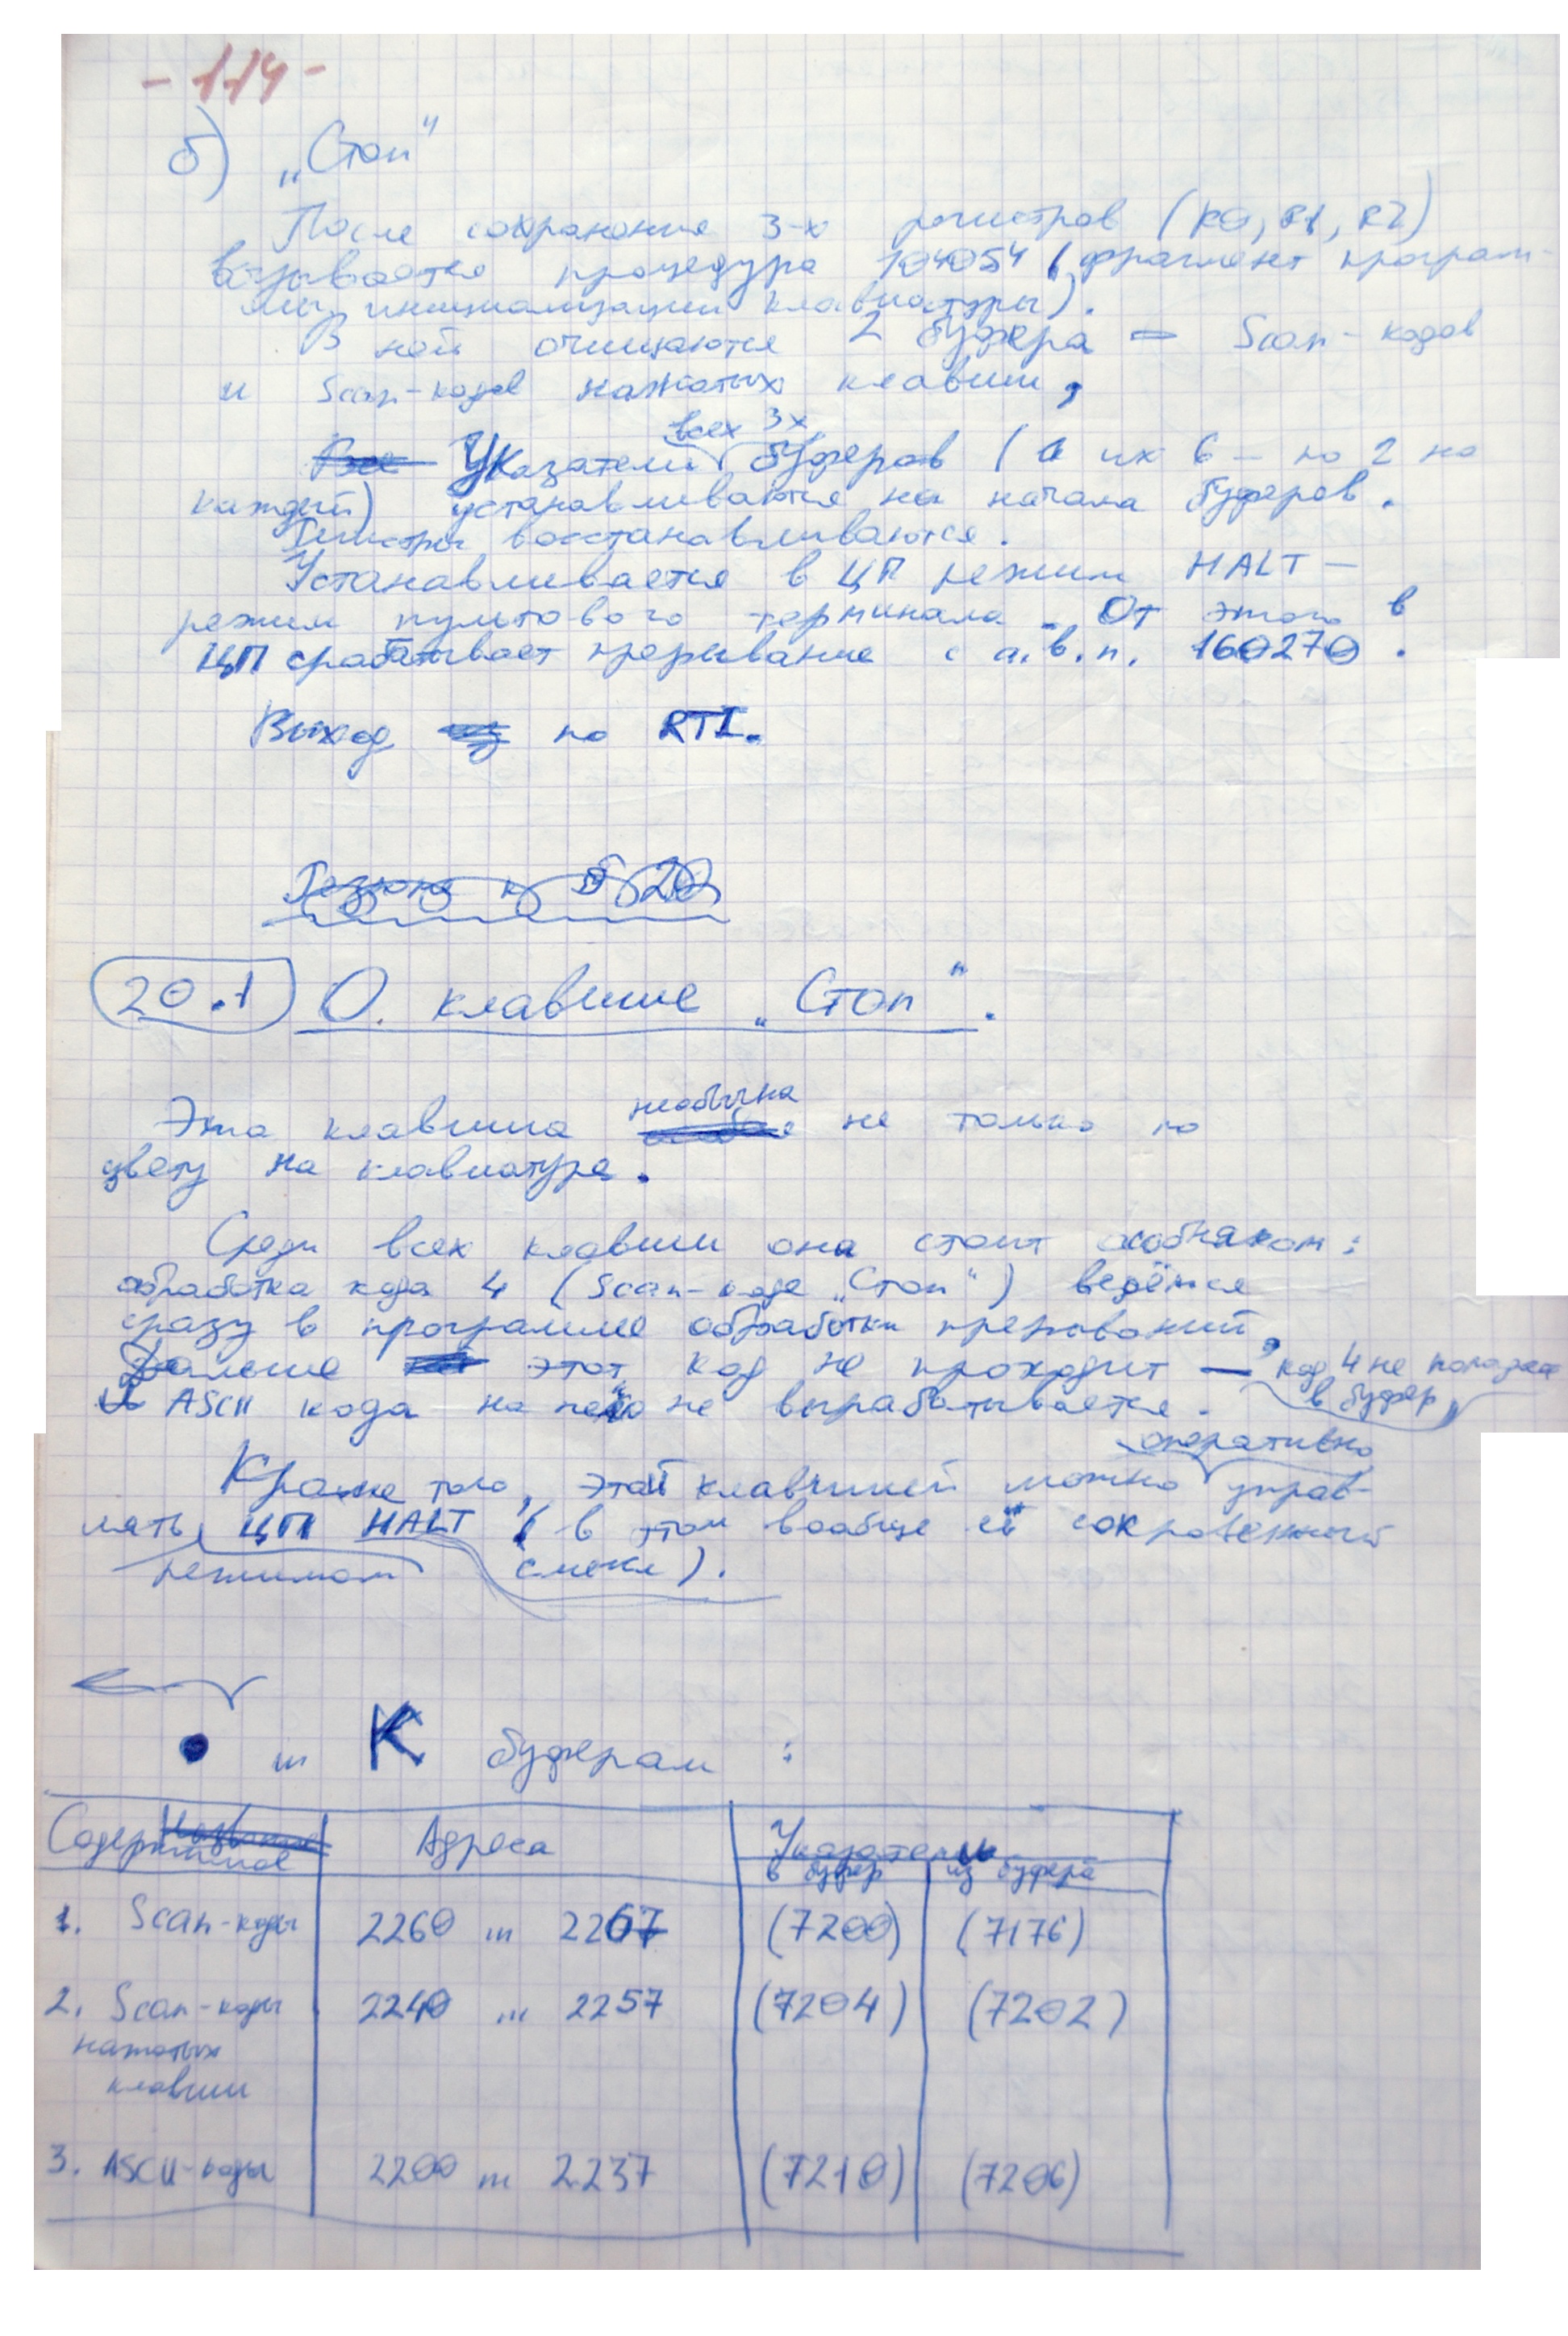 - 114 -
б) „Стоп"
После сохранения 3-х регистров (R0, R1, R2)
вызывается процедура 104054 (фрагмент програм-
мы инициализации клавиатуры).
В ней очищаются 2 буфера — Scan-кодов
и Scan-кодов нажатых клавиш,
всех 3х
Все Указатели буферов (а их 6 — по 2 на
каждый) устанавливаются на начала буферов.
Регистры восстанавливаются.
Устанавливается в ЦП режим HALT —
режим пультового терминала. От этого в
ЦП срабатывает прерывание с а.в.п. 160270.
Выход из по RTI.
Резюме к § 20
20.1 О клавише „Стоп".
необычна
Эта клавиша не только по
цвету на клавиатуре.
Среди всех клавиш она стоит особняком:
обработка кода 4 (Scan-коде „Стоп") ведётся
сразу в программе обработки прерываний,
Дальше этот код не проходит — код 4 не попадает
в буфер,
и ASCII кода на него не вырабатывается.
оперативно
Кроме того, этой клавишей можно управ-
лять ЦП HALT (в этом вообще её сокровенный
режимом смысл).
К буферам :
Содержимое Название Адреса Указатели
в буфер из буфера
1. Scan-коды 2260 ... 2267 (7200) (7176)
2. Scan-коды 2240 ... 2257 (7204) (7202)
нажатых
клавиш
3. ASCII-коды 2200 ... 2237 (7210) (7206)